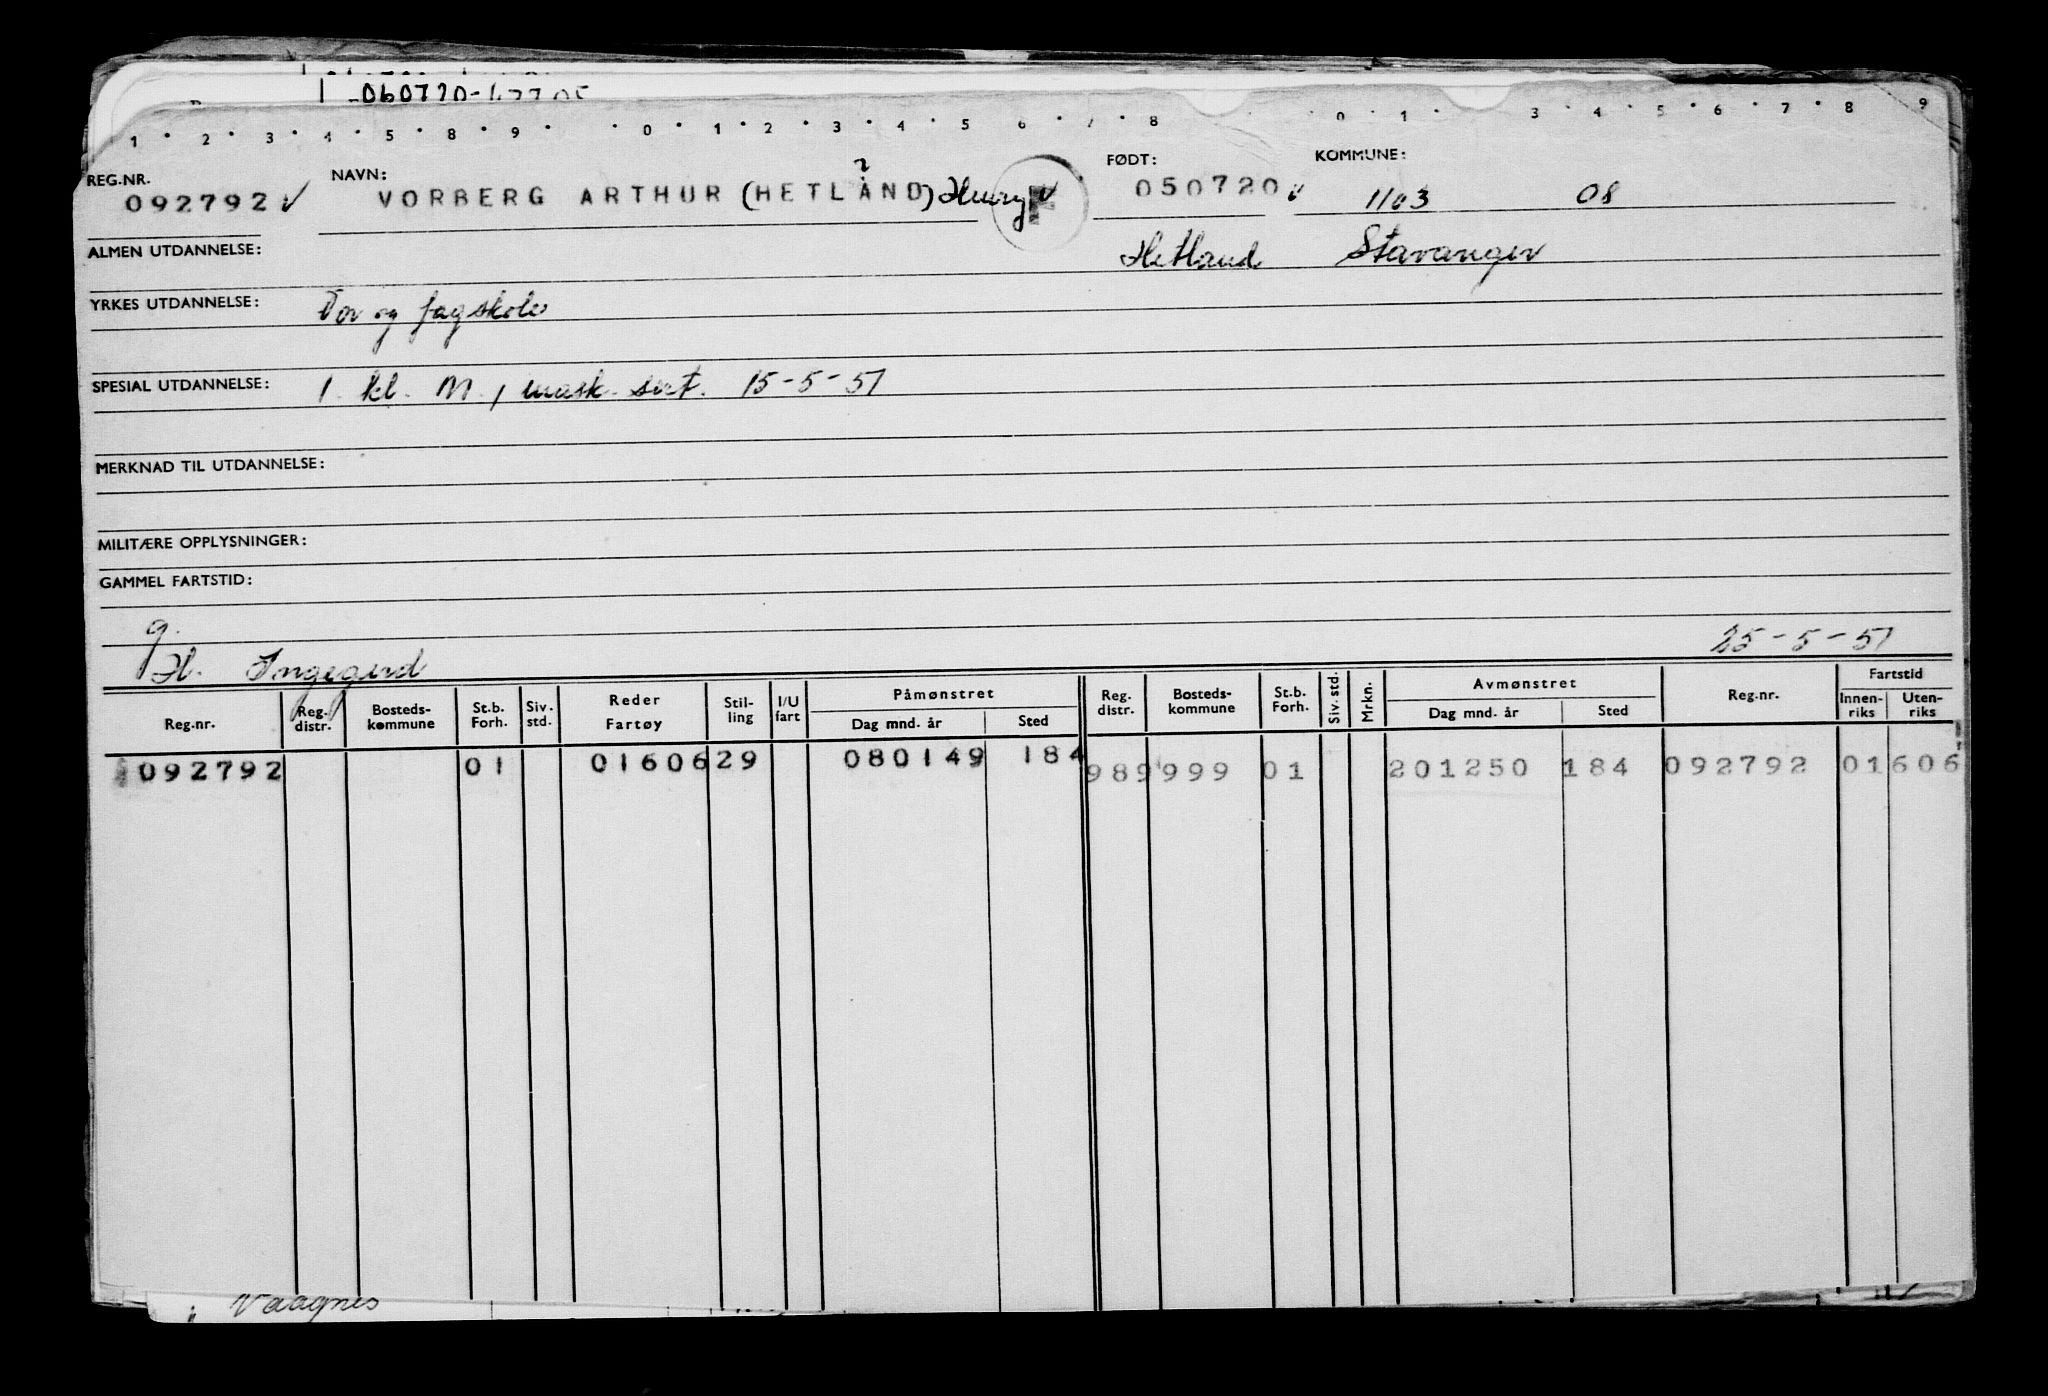 060720-
1 · 2 · 3 · 4 · 5 · 8 · 9 · · 0 · 1 · 2 · 3 · 4 · 5 6 · 7 · 8 · 0 · 1 · 3 · 4 · 5 · 6 · 7 · 8 9
REG.NR. NAVN: FØDT: KOMMUNE:
092792 VORBERG ARTHUR (HETLAND) Henry F 050720 1103 08
ALMEN UTDANNELSE: Hetland Stavanger
YRKES UTDANNELSE: For og fagskole
SPESIAL UTDANNELSE: 1. kl. M., mask. sert. 15-5-51
MERKNAD TIL UTDANNELSE:
MILITÆRE OPPLYSNINGER:
GAMMEL FARTSTID:
g. 25-5-51
H. Ingegerd
Reg.nr. Reg. distr. Bosteds-kommune St.b. Forh. Siv. std. Reder Fartøy Stil-ling I/U fart Påmønstret Dag mnd. år Sted Reg. distr. Bosteds-kommune St.b. Forh. Siv. std. Mrkn. Avmønstret Dag mnd. år Sted Reg.nr. Fartstid Innen-riks Uten-riks
092792 01 0160629 080149 184 989 999 01 201250 184 092792 01606
Vaagnes